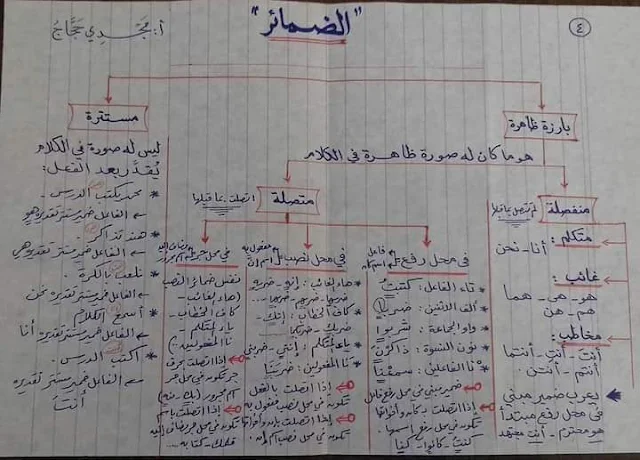 ٤
"الضمائر"
أ: مجدي حجاج
بارزة ظاهرة
مستترة
هو ما كان له صورة ظاهرة في الكلام
منفصلة
لم تتصل بما قبلها
متكلم:
أنا - نحن
غائب:
هو - هي - هما
هم - هن
مخاطب:
أنتَ - أنتِ - أنتما
أنتم - أنتن
يعرب ضمير مبني
في محل رفع مبتدأ
هو محترم - أنت مجتهد
متصلة
اتصلت بما قبلها
في محل رفع
فاعل
اسم كان
* تاء الفاعل: كتبتُ
* ألف الاثنين: ضربا
* واو الجماعة: شربوا
* نون النسوة: ذاكرْنَ
* نا الفاعلين: سمعْنا
ضمير مبني في محل رفع فاعل
إذا اتصلت بـ كان وأخواتها
تكون في محل رفع اسمها.
كنتُ - كانوا - كنا
في محل نصب
مفعول به
اسم إن
* هاء الغائب: إنه - ضربه
ضربها - ضربهم - ضربهما...
* كاف الخطاب: إنك -
ضربك - ضربكما
* ياء المتكلم: إنني - ضربني
* نا المفعولين:
إذا اتصلت بالفعل
تكون في محل نصب مفعول به
إذا اتصلت بإن وأخواتها
تكون في محل نصب اسم إن.
في محل جر
اسم مجرور
نفس ضمائر النصب
(هاء الغائب -
كاف الخطاب -
ياء المتكلم -
نا المفعولين)
إذا اتصلت بحرف
جر تكون في محل جر
اسم مجرور (بك - منه)
إذا اتصلت باسم
تكون في محل جر مضاف إليه
قلمك - كتابه...
ليس له صورة في الكلام
يُقدَّر بعد الفعل:
* محمد يكتب الدرس -
← الفاعل ضمير مستتر تقديره هو
* هند تذاكر.
← الفاعل ضمير مستتر تقديره هي
* نلعب بالكرة.
← الفاعل ضمير مستتر تقديره نحن
* أسمع الكلام
← الفاعل ضمير مستتر تقديره أنا
* اكتب الدرس.
← الفاعل ضمير مستتر تقديره
أنتَ